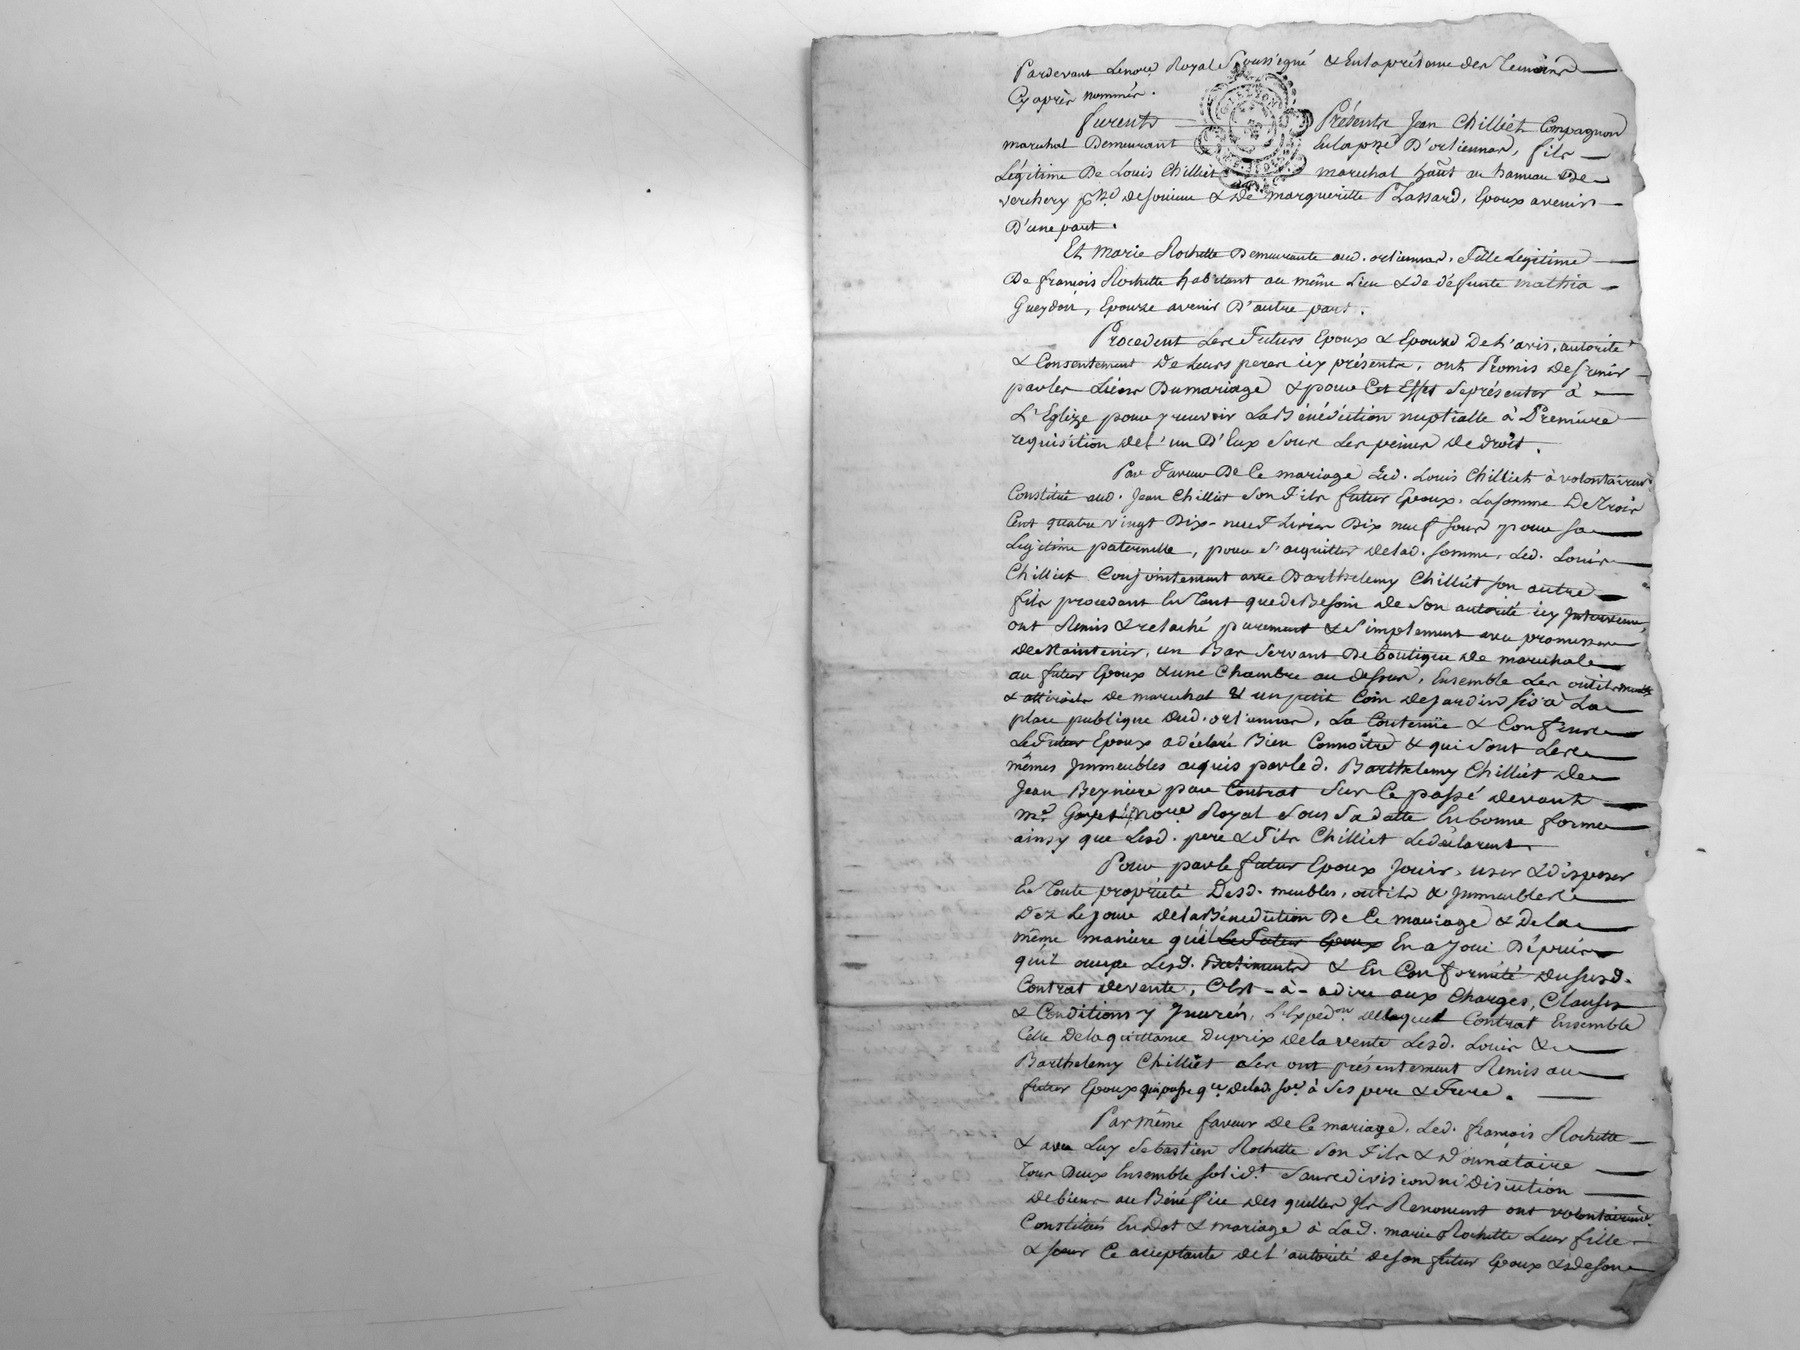 Pardevant Lenore. Royal Soussigné & En la présence des Temoins
Cy après nommés.
furents Présents Jean Chilliet Compagnon
marechal Demeurant En la psse D'orliennas, fils
Légitime De Louis Chilliet marechal hañt au hameau De
verchery psse de & de margueritte Plassard, Epoux avenir
D'une part.
Et Marie Rochette Demeurante aud. orliennas, fille Légitime
De françois Rochette habitant au même Lieu & de défunte mathia
Gueydon, Epouze avenir D'autre part.
Procedent Les Futurs Epoux & Epouze De L'avis, autorité
& Consentement De Leurs peres icy présents, ont Promis de s'unir
par les Liens Du mariage & pour Cet Effet se présenter à
L'Eglize pour y recevoir La Bénédiction nuptialle à Premiere
requisition de l'un D'Eux sous Les peines de droit.
Par Faveur De Ce mariage Led. Louis Chilliet à volontairemt
Constitué aud. Jean Chilliet son Fils futur Epoux, La somme De Trois
Cent quatre vingt Dix-neuf Livres Dix neuf sous pour sa
Legitime paternelle, pour s'acquitter de lad. somme, Led. Louis
Chilliet Conjointement avec Barthelemy Chilliet son autre
fils procedant En Tant que de Besoin de son autorité icy Intervenu,
ont Remis & relaché purement & simplement avec promesse
de Maintenir, un Bas servant De boutique de marechal
au futur Epoux & une Chambre au dessus, Ensemble Les outils meubles
& attirails de marechal & un petit Coin de jardin sis à La
place publique dud. orliennas, La Contenüe & Confins
Le Futur Epoux a déclaré Bien Connoître & qui sont Les
mêmes Immeubles acquis par led. Barthelemy Chilliet de
Jean Beyniere par Contrat sur Ce passé devant
Me. nore. Royal sous sa datte En bonne forme
ainsy que Lesd. pere & Fils Chilliet Le déclarent.
Pour par le futur Epoux Jouir, user & disposer
En Toute propriété Desd. meubles, outils & Immeubles
Dez Le jour de la Bénédiction De Ce mariage & de la
même maniere qu'il Le Futur Epoux En a Joui Dépuis
qu'il occupe Lesd. Batiments & En Conformité du susd.
Contrat de vente, C'est-à-dire aux Charges, Clauses
& Conditions y Inserés, L'Expedon. duquel Contrat Ensemble
Celle de la quittance Du prix de la vente Lesd. Louis &
Barthelemy Chilliet Les ont présentement Remis au
futur Epoux qui passe qce. de lad. soe. à ses pere & Frere.
Par même faveur de Ce mariage, Led. françois Rochette
& avec Luy Sebastien Rochette son Fils & Donnataire
Tous Deux Ensemble solidt. sans division ni Discution
de biens au Bénéfice des quelles Ils Renoncent ont volontairemt.
Constitués En Dot & mariage à Lad. marie Rochette Leur fille
& soeur Ce acceptante de l'autorité de son futur Epoux & de son